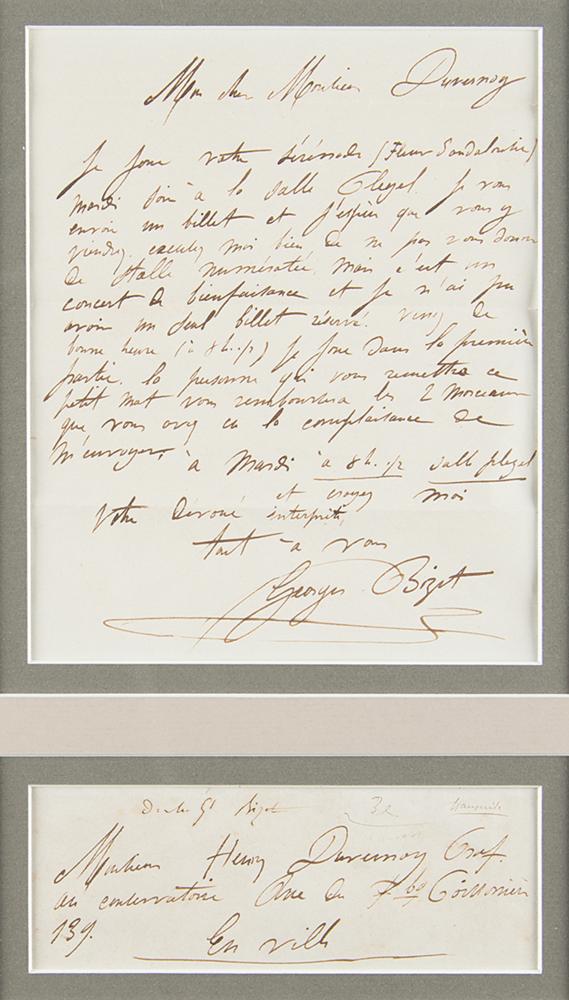 Mon cher Monsieur Duvernoy
Je joue votre sérénade (Fleur d'andalousie)
mardi soir à la salle Pleyel. Je vous
envoie un billet et j'espère que vous y
viendrez. excusez moi bien de ne pas vous donner
de stalle numérotée, mais c'est un
concert de bienfaisance et je n'ai pu
avoir un seul billet réservé. venez de
bonne heure (à 8h. 1/2) je joue dans la première
partie. la personne qui vous remettra ce
petit mot vous remboursera les 2 morceaux
que vous avez eu la complaisance de
m'envoyer, à Mardi à 8h. 1/2 salle pleyel
et croyez moi
votre dévoué interprète,
tout à vous
Georges Bizet
Bizet 32
Monsieur Henry Duvernoy Prof.
au conservatoire Rue du Fbg Poissonnière
139.
En ville